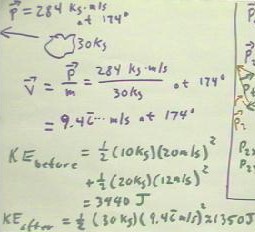 P⃗ = 284 kg·m/s
at 174°
30kg
V⃗ = P⃗/m = 284 kg·m/s / 30kg at 174°
= 9.46̅... m/s at 174°
KE before = ½ (10kg)(20m/s)²
+ ½ (20kg)(12m/s)²
= 3440 J
KE after = ½ (30kg)(9.46̅ m/s)² ≈ 1350J
P⃗
P₂